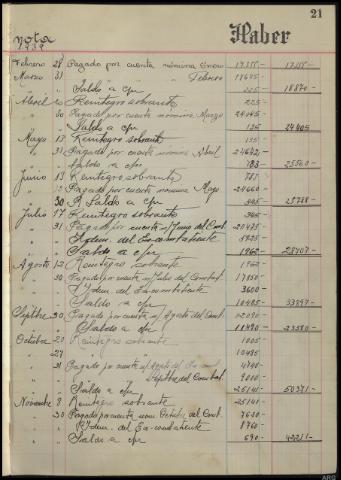 21
nota
1939
Haber
Febrero 28 Pagado por cuenta nomina Enero 17355- 17355-
Marzo 31 " " " " Febrero 18645-
" " Saldo a c/n 225- 18870-
Abril Reintegro sobrante 225-
" 30 Pagado por cuenta nomina Marzo
" " Saldo a c/n 135 24405
Mayo 17 Reintegro sobrante 135-
" 31 Pagado por cuenta nomina Abril
" " Saldo a c/n 783
Junio 13 Reintegro sobrante 783
" Pagado por cuenta nomina Mayo 24660-
" 30 Saldo a c/n
Julio 17 Reintegro sobrante
" 31 Pagado por cuenta n/ Junio del Comb.
" " Idem. del Ex-combatiente
" " Saldo a c/n 1962
Agosto Reintegro sobrante 1962
" Pagado por cuenta n/ Julio del Combat.
" " Idem del Ex-combatiente 3600-
" " Saldo a c/n 10485
Sepbre 30 Pagado por cuenta n/ Agosto del Comb.
" " Saldo a c/n 11490
Octubre 20 Reintegro sobrante 1005-
" 27 " " 10485
" 31 Pagado por cuenta n/ Agosto del
" " Sepbre del Combat.
" " Saldo a c/n 25141- 50371-
Novembre 8 Reintegro sobrante 25141-
" 30 Pagado por cuenta nom. Octubre del Comb. 7620-
" " Idem. del Ex-combatiente 8760
" " Saldo a c/n 690
ARG